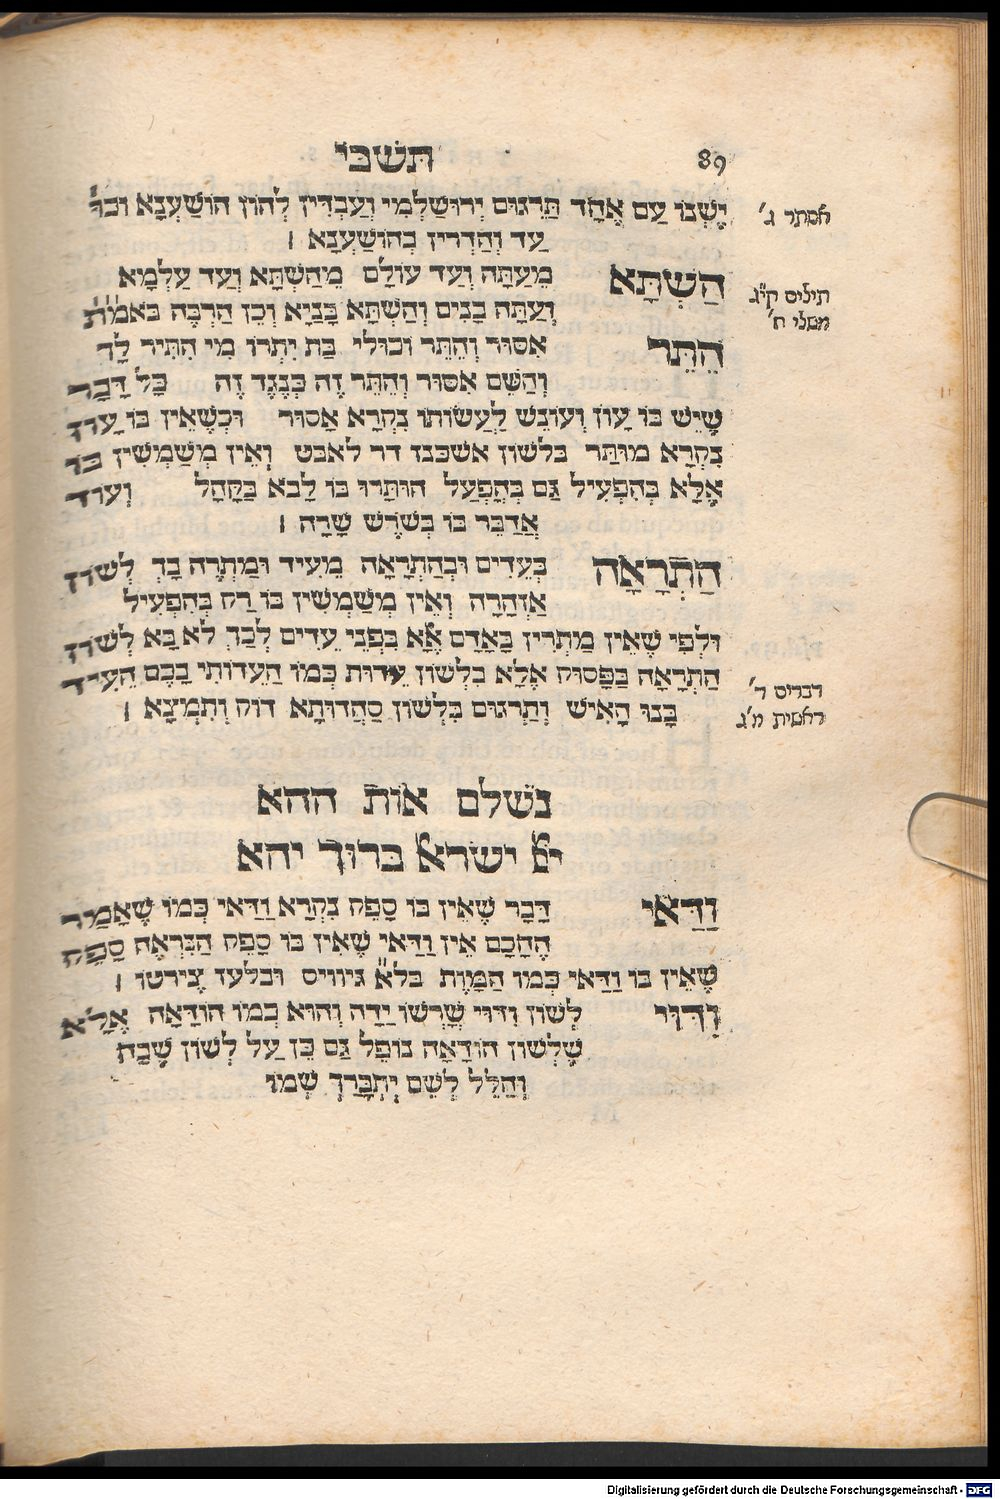 תשבי
89
יֶשְׁנוֹ עַם אֶחָד תַּרְגּוּם יְרוּשַׁלְמִי וְעַבְדִּין לְהוֹן הוֹשַׁעְנָא וכו'
אסתר ג'
עַד וְהַדְרִין בְּהוֹשַׁעְנָא ׀
הַשְׁתָּא מֵעַתָּה וְעַד עוֹלָם מֵהַשְׁתָּא וְעַד עַלְמָא
תילים קי"ג
וְעַתָּה בָנִים וְהַשְׁתָּא בְּנַיָּא וְכֵן הַרְבֵּה בא"מת
משלי ח'
הֶתֵּר אִסּוּר וְהֶתֵּר וכולי בַּת יִתְרוֹ מִי הִתִּיר לָךְ
וְהַשֵּׁם אִסּוּר וְהֶתֵּר זֶה כְּנֶגֶד זֶה כָּל דָּבָר
שֶׁיֵּשׁ בּוֹ עָוֹן וְעוֹנֶשׁ לַעֲשׂוֹתוֹ נִקְרָא אָסוּר וּכְשֶׁאֵין בּוֹ עָוֹן
נִקְרָא מוּתָּר בלשון אשכנז דר לאבט וְאֵין מְשַׁמְשִׁין בּוֹ
אֶלָּא בְּהִפְעִיל גַּם בְּהָפְעַל הוּתָּרוּ בּוֹ לָבֹא בַּקָּהָל וְעוֹד
אֲדַבֵּר בּוֹ בְּשֹׁרֶשׁ שָׁרָה ׀
הַתְרָאָה בְּעֵדִים וּבְהַתְרָאָה מֵעִיד וּמַתְרֶה בָךְ לְשׁוֹן
אַזְהָרָה וְאֵין מְשַׁמְשִׁין בּוֹ רַק בְּהִפְעִיל
וּלְפִי שֶׁאֵין מַתְרִין בָּאָדָם אֶלָּא בִּפְנֵי עֵדִים לְכַךְ לֹא בָּא לְשׁוֹן
הַתְרָאָה בַּפָּסוּק אֶלָּא בִּלְשׁוֹן עֵדוּת כְּמוֹ הַעִדוֹתִי בָכֶם הָעֵיד
דברים ד'
בָּנוּ הָאִישׁ וְתַרְגּוּם בִּלְשׁוֹן סַהֲדוּתָא דוֹק וְתִמְצָא ׀
ראשית מ"ג
נשלם אות ההא
יי ישראל ברוך יהא
וַדַּאי דָּבָר שֶׁאֵין בּוֹ סָפֵק נִקְרָא וַדַּאי כְּמוֹ שֶׁאָמַר
הֶחָכָם אֵין וַדַּאי שֶׁאֵין בּוֹ סָפֵק הַנִּרְאֶה סָפֵק
שֶׁאֵין בּוֹ וַדַּאי כְּמוֹ הַמָּוֶת בל"א גיוויס ובלעז צירטו ׀
וִדּוּי לְשׁוֹן וִדּוּי שָׁרְשׁוֹ יָדָה וְהוּא כְּמוֹ הוֹדָאָה אֶלָּא
שֶׁלְּשׁוֹן הוֹדָאָה נוֹפֵל גַּם כֵּן עַל לְשׁוֹן שֶׁבַח
וְהַלֵּל לְשֵׁם יִתְבָּרֵךְ שְׁמוֹ
Digitalisierung gefördert durch die Deutsche Forschungsgemeinschaft - DFG